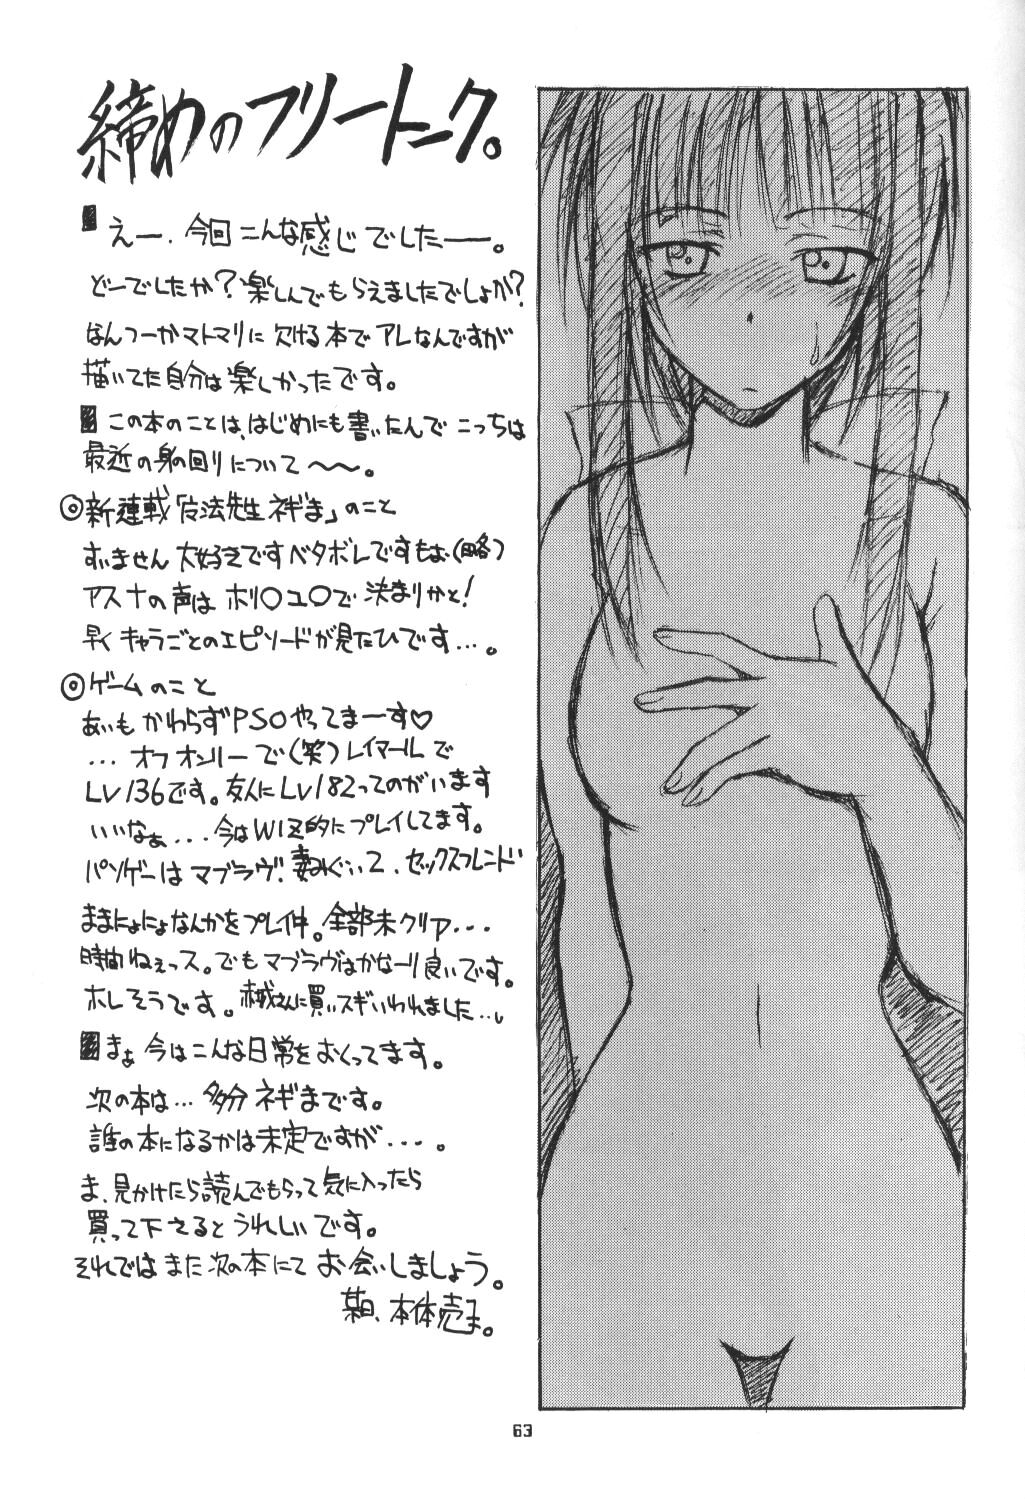 締めのフリートーク。
えー、今回こんな感じでしたー。
どーでしたか?楽しんでもらえましたでしょか?
なんつーかマトマリに欠ける本でアレなんですが
描いてた自分は楽しかったです。
この本のことは、はじめにも書いたんでこっちは
最近の身の回りについて〜〜。
◎新連載「 法先生ネギま」のこと
すいません大好きですベタボレですもぉ、(略)
アスナの声はホリ○ユ○で決まりかと!
早くキャラごとのエピソードが見たひです…。
◎ゲームのこと
あいもかわらずPSOやってまーす♡
…オフオンリーで(笑)レイマールで
Lv136です。友人にLv182ってのがいます
いいなぁ...今はWIZ的にプレイしてます。
パソゲーはマブラヴ、妻みぐい2、セックスフレンド
ままにょにょなんかをプレイ中。全部未クリア...
時間ねぇっス。でもマブラヴはかなーり良いです。
ホレそうです。 さんに買いスギいわれました…
まぁ今はこんな日常をおくってます。
次の本は…多分ネギまです。
誰の本になるかは未定ですが...。
ま、見かけたら読んでもらって気に入ったら
買って下さるとうれしいです。
それではまた次の本にてお会いしましょう。
某日、本体売ま。
63